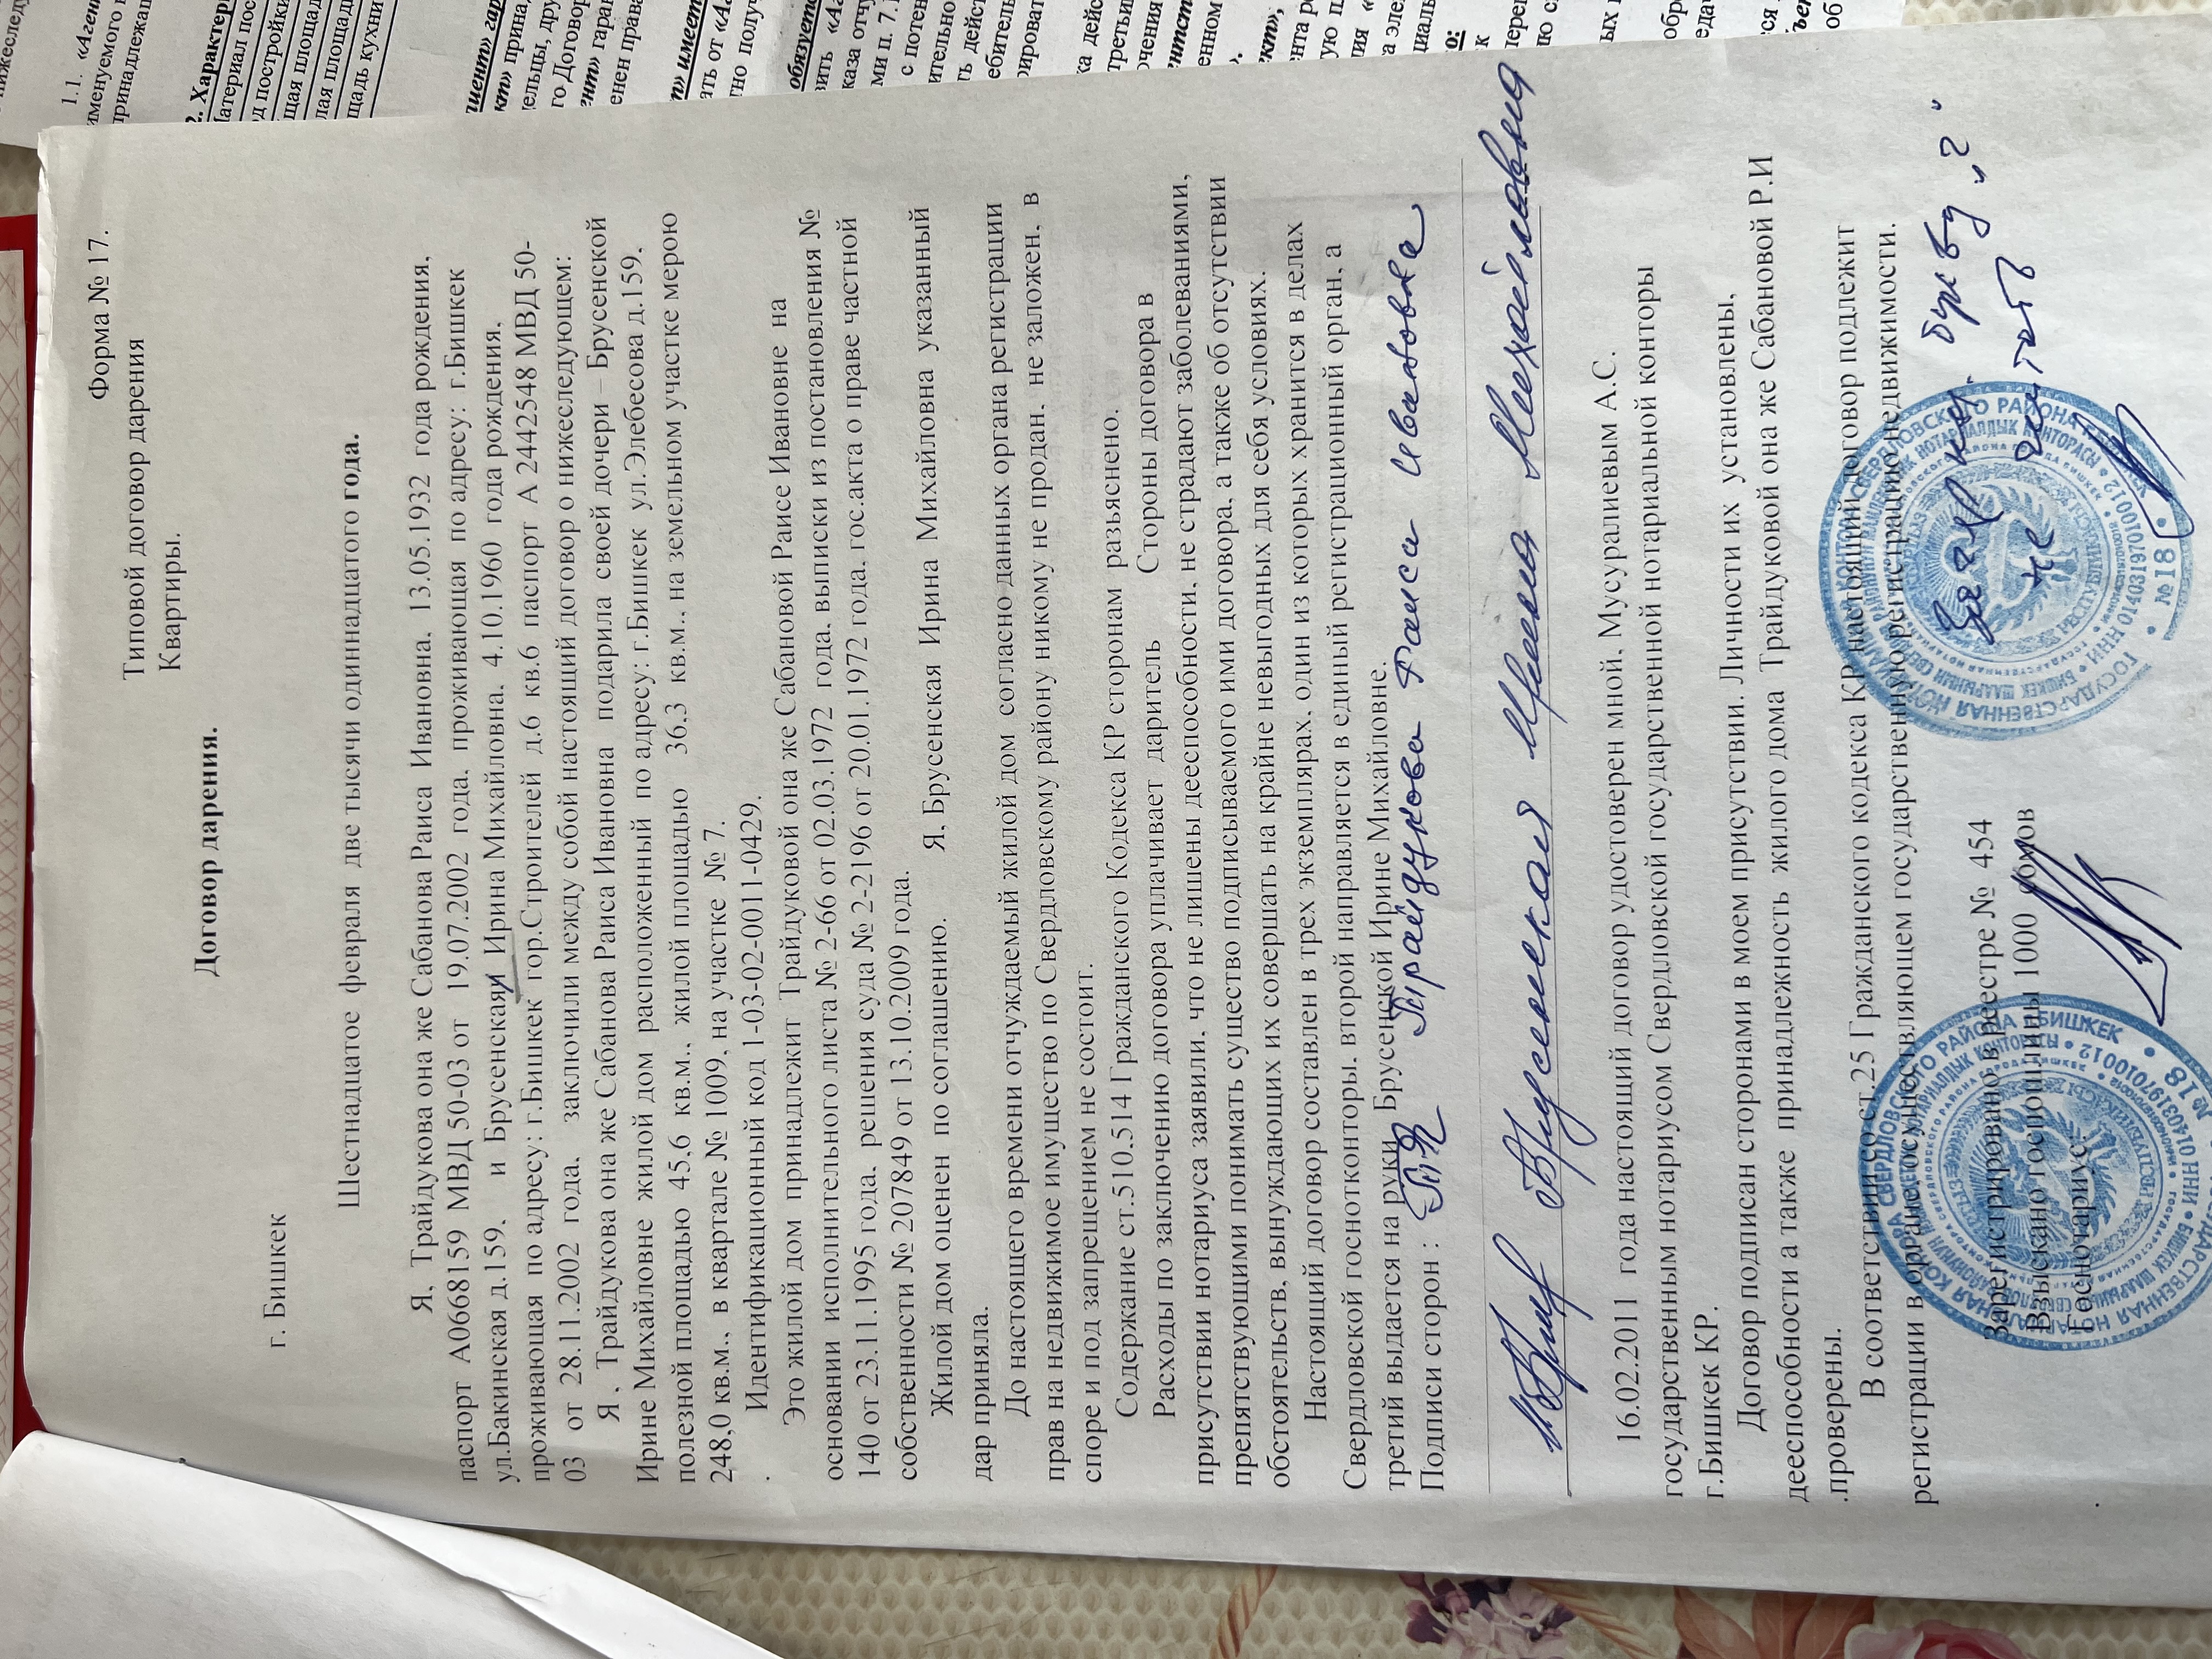 Форма № 17.
Типовой договор дарения
Квартиры.
Договор дарения.
г. Бишкек
Шестнадцатое февраля две тысячи одиннадцатого года.
Я, Трайдукова она же Сабанова Раиса Ивановна, 13.05.1932 года рождения,
паспорт А0668159 МВД 50-03 от 19.07.2002 года, проживающая по адресу: г.Бишкек
ул.Бакинская д.159. и Брусенская Ирина Михайловна, 4.10.1960 года рождения,
проживающая по адресу: г.Бишкек гор.Строителей д.6 кв.6 паспорт А 2442548 МВД 50-
03 от 28.11.2002 года, заключили между собой настоящий договор о нижеследующем:
Я , Трайдукова она же Сабанова Раиса Ивановна подарила своей дочери – Брусенской
Ирине Михайловне жилой дом расположенный по адресу: г.Бишкек ул.Элебесова д.159,
полезной площадью 45.6 кв.м., жилой площадью 36.3 кв.м., на земельном участке мерою
248,0 кв.м., в квартале № 1009, на участке № 7.
Идентификационный код 1-03-02-0011-0429.
Это жилой дом принадлежит Трайдуковой она же Сабановой Раисе Ивановне на
основании исполнительного листа № 2-66 от 02.03.1972 года, выписки из постановления №
140 от 23.11.1995 года, решения суда № 2-2196 от 20.01.1972 года, гос.акта о праве частной
собственности № 207849 от 13.10.2009 года.
Жилой дом оценен по соглашению. Я, Брусенская Ирина Михайловна указанный
дар приняла.
До настоящего времени отчуждаемый жилой дом согласно данных органа регистрации
прав на недвижимое имущество по Свердловскому району никому не продан, не заложен, в
споре и под запрещением не состоит.
Содержание ст.510.514 Гражданского Кодекса КР сторонам разъяснено.
Расходы по заключению договора уплачивает даритель Стороны договора в
присутствии нотариуса заявили, что не лишены дееспособности, не страдают заболеваниями,
препятствующими понимать существо подписываемого ими договора, а также об отсутствии
обстоятельств, вынуждающих их совершать на крайне невыгодных для себя условиях.
Настоящий договор составлен в трех экземплярах, один из которых хранится в делах
Свердловской госнотконторы, второй направляется в единый регистрационный орган, а
третий выдается на руки Брусенской Ирине Михайловне.
Подписи сторон : Трайдукова Раиса Ивановна
Брусенская Ирина Михайловна
16.02.2011 года настоящий договор удостоверен мной, Мусуралиевым А.С.
государственным нотариусом Свердловской государственной нотариальной конторы
г.Бишкек КР.
Договор подписан сторонами в моем присутствии. Личности их установлены,
дееспособности а также принадлежность жилого дома Трайдуковой она же Сабановой Р.И
.проверены.
В соответствии со ст.25 Гражданского кодекса КР настоящий договор подлежит
регистрации в органе осуществляющем государственную регистрацию недвижимости.
букву
не читать
Зарегистрировано в реестре № 454
Взыскано госпошлины 1000 сомов
Госнотариус: